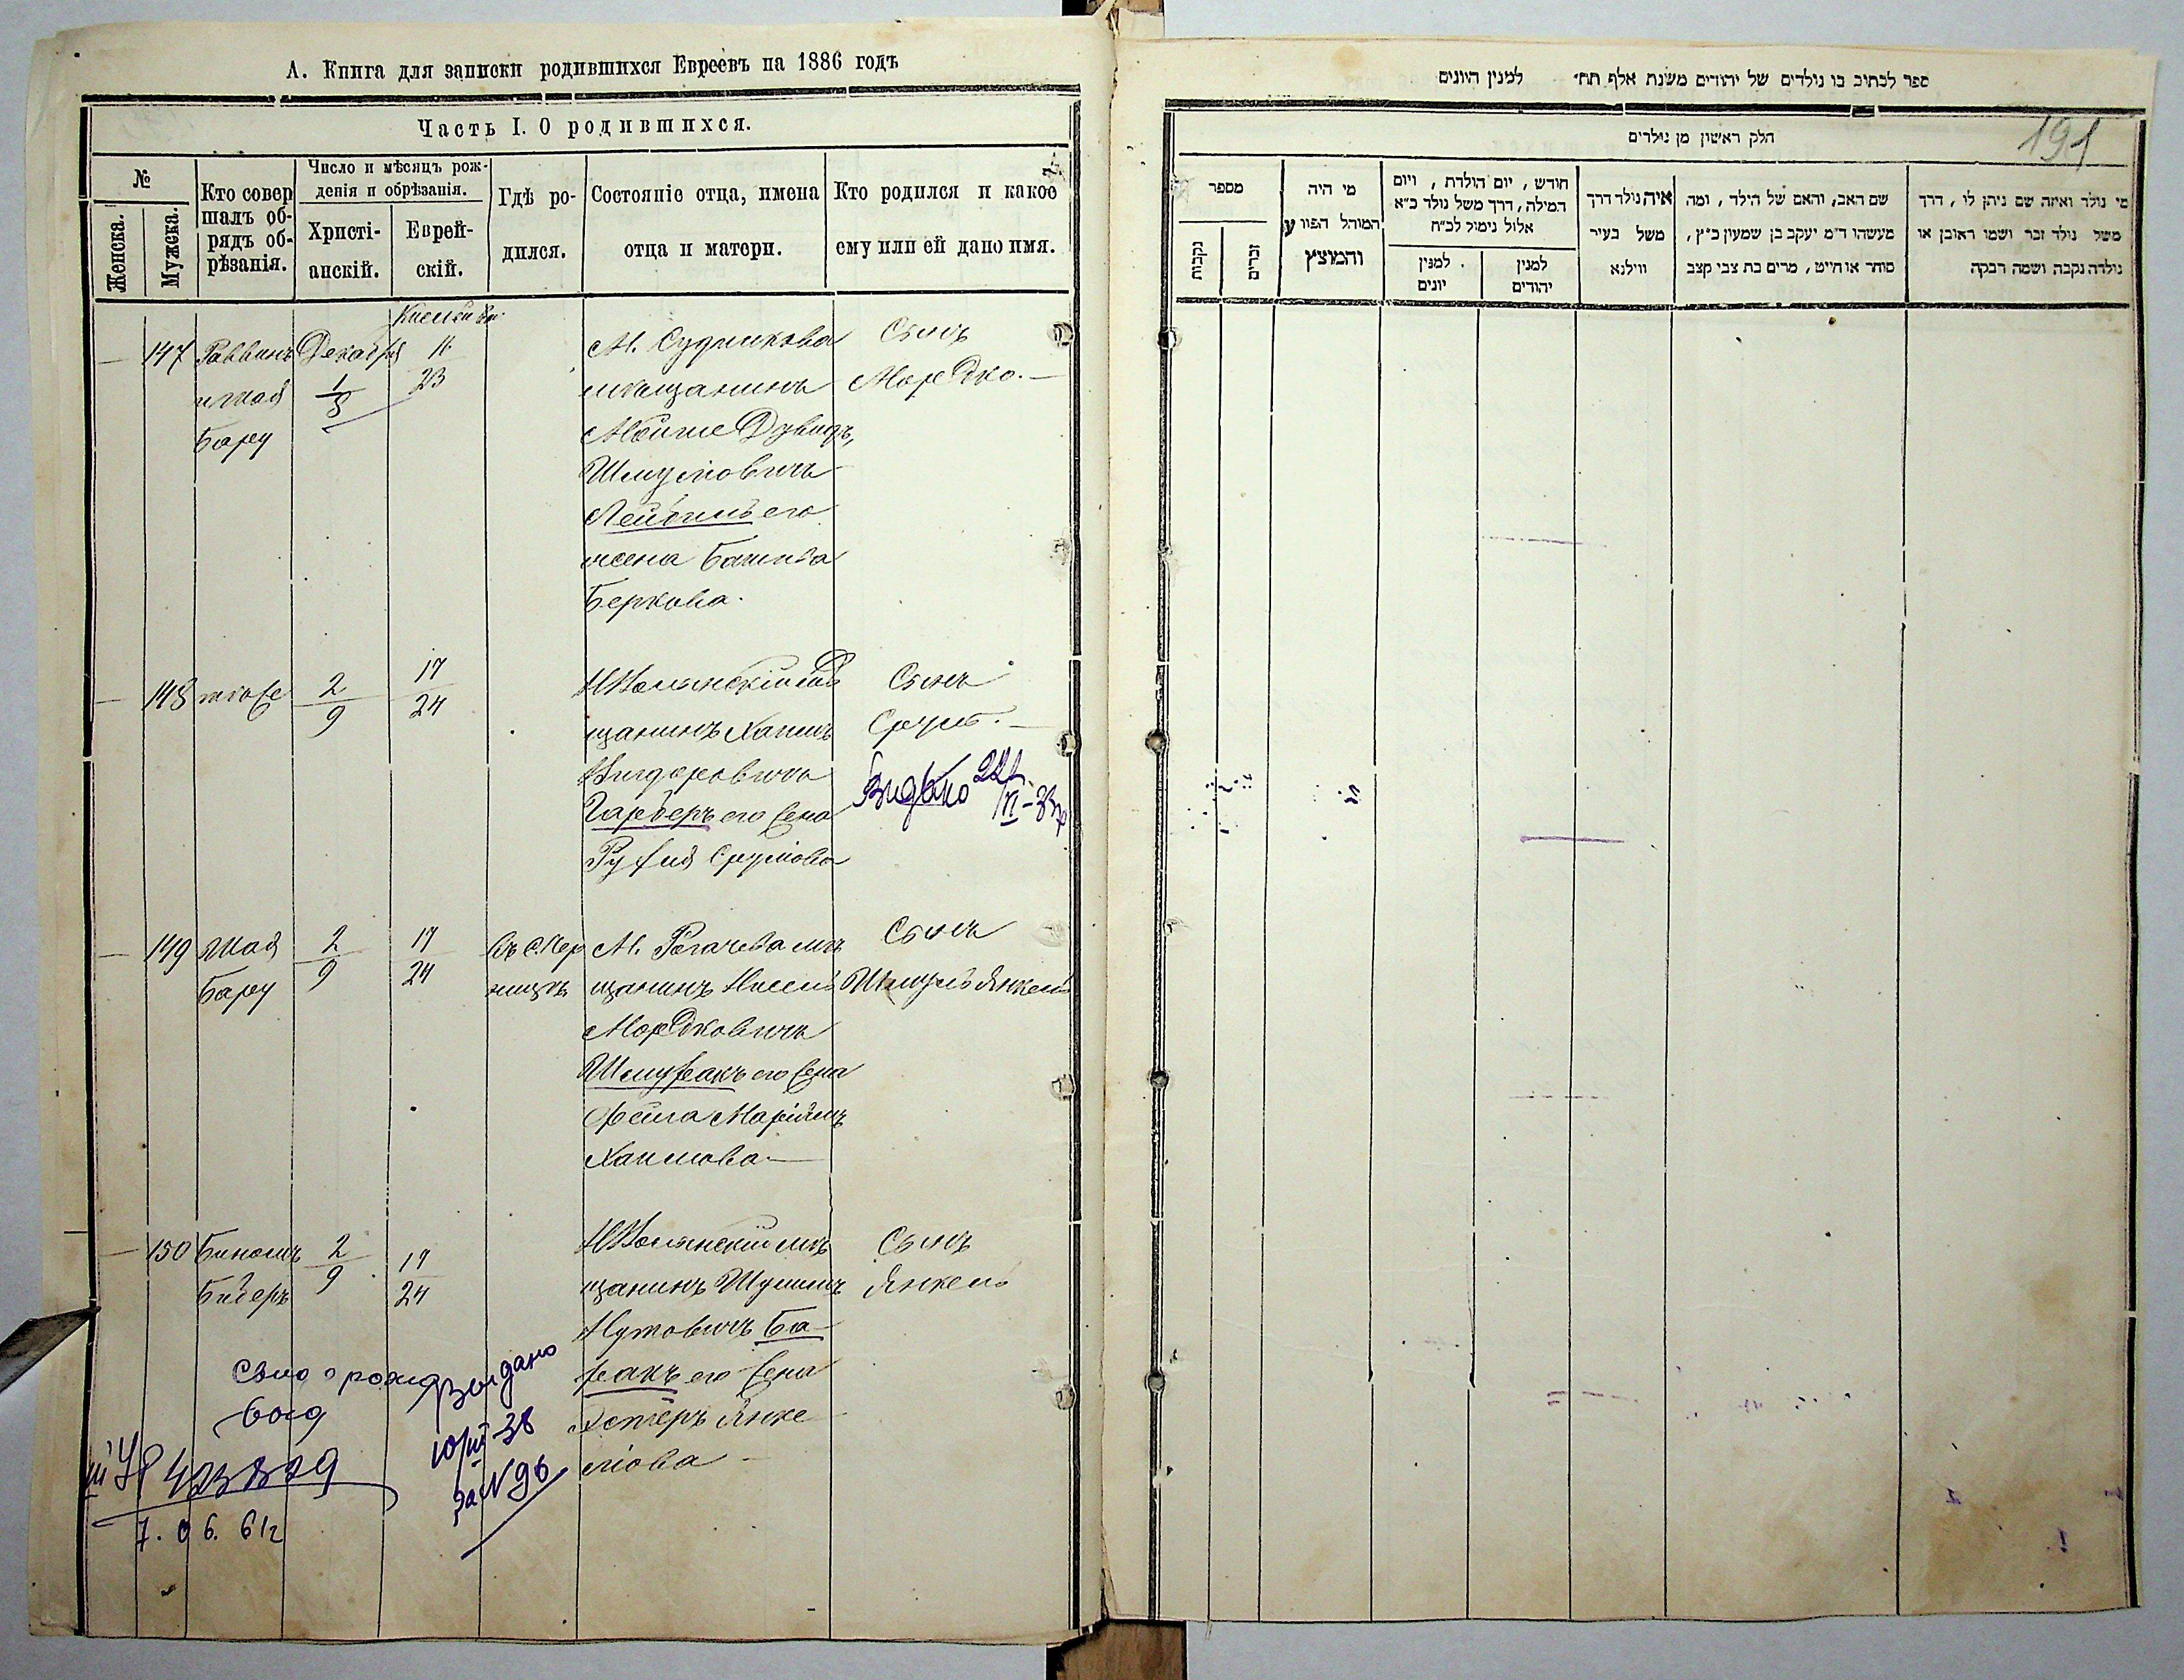 А. Книга для записки родившихся Евреевъ на 1886 годъ
Часть I. О родившихся.
№
Женска.
Мужеска.
Кто совер
шалъ об-
рядъ об-
рѣзанія.
Число и мѣсяцъ рож-
денія и обрѣзанія.
Христі-
анскій.
Еврей-
скій.
Гдѣ ро-
дился.
Состояніе отца, имена
отца и матери.
Кто родился и какое
ему или ей дано имя.
147
Раввинъ
Бару
Декабря
1
8
11
23
М. Судилкова
мѣщанинъ
Мойше Дувидъ,
Шмулiовичъ
его
жена
Беркова.
Сынъ
Мордко.
148
тоже
2
9
17
24
щанинъ Хаимъ
Вигдоровичъ
Гарберъ его жена
Рухля Срулiова
Сынъ
Сруль.
Видано 221
VI-38
149
Бару
2
9
17
24
М. Рогачева мѣ
щанинъ
Мордковичъ
Шмуракъ его жена
Фейга Марiямъ
Хаимова
Сынъ
Шмуль Янкель
150
2
9
17
24
щанинъ
Нутовичъ Ба
его жена
Эстеръ Янке
лiова
Сынъ
Янкель
Свид о рожд
выд
7. 06. 61г
Выдано
10/III-38
за N 96
ספר לכתיב בו נולדים של יהודים משנת אלף תת״ למנין היונים
191
חלק ראשון מן נולדים
מספר
נקבות
זכרים
מי היה
המוהל הפורע
והמוצץ
חודש, יום הולדת, ויום
המילה, דרך משל נולד כ״א
אלול נימול לכ״ח
למנין
יונים
למנין
יהודים
איה נולד דרך
משל בעיר
ווילנא
שם האב, והאם של הילד, ומה
מעשהו ד״מ יעקב בן שמעון כ״ץ,
סוחר או חייט, מרים בת צבי קצב
מי נולד ואיזה שם ניתן לו, דרך
משל נולד זכר ושמו ראובן או
נולדה נקבה ושמה רבקה